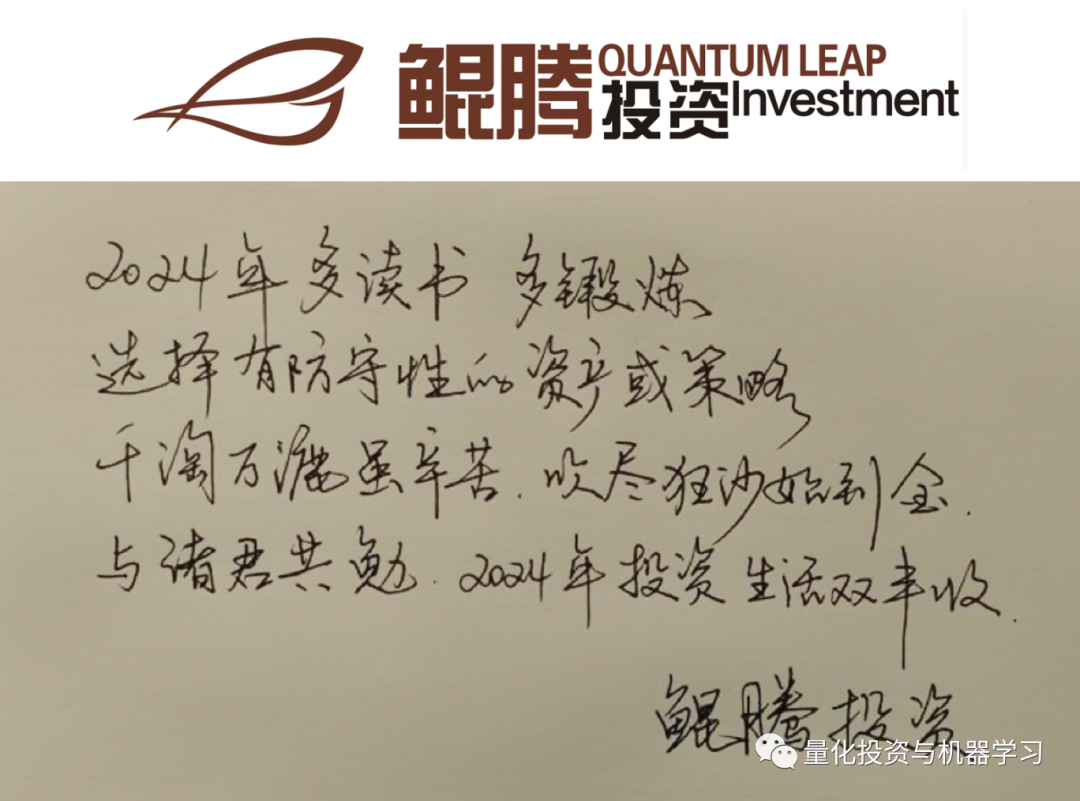 鲲腾投资
QUANTUM LEAP
Investment
2024年多读书 多锻炼
选择有防守性的资产或策略
千淘万漉虽辛苦.吹尽狂沙始到金.
与诸君共勉.2024年投资生活双丰收.
鲲腾投资
量化投资与机器学习